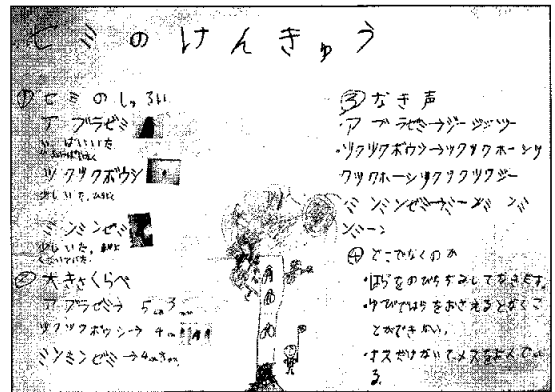 セミのけんきゅう
①セミのしゅるい
アブラゼミ
いっぱいいた。
ツクツクボウシ
少しいた。
ミンミンゼミ
少しいた。
②大きさくらべ
アブラゼミ→5cm3mm
ツクツクボウシ→4cm
ミンミンゼミ→4cm
③なき声
・アブラゼミ→ジージッツー
・ツクツクボウシ→ツクツクホーシツ
クツクホーシツクツクツクジー
ミンミンゼミ→ミーンミン
ミーン
④どこでなくのか
・はらをのびちぢみしてなきます。
・ゆびではらをおさえるとなくこ
とができない。
・オスだけないてメスをよんでい
る。